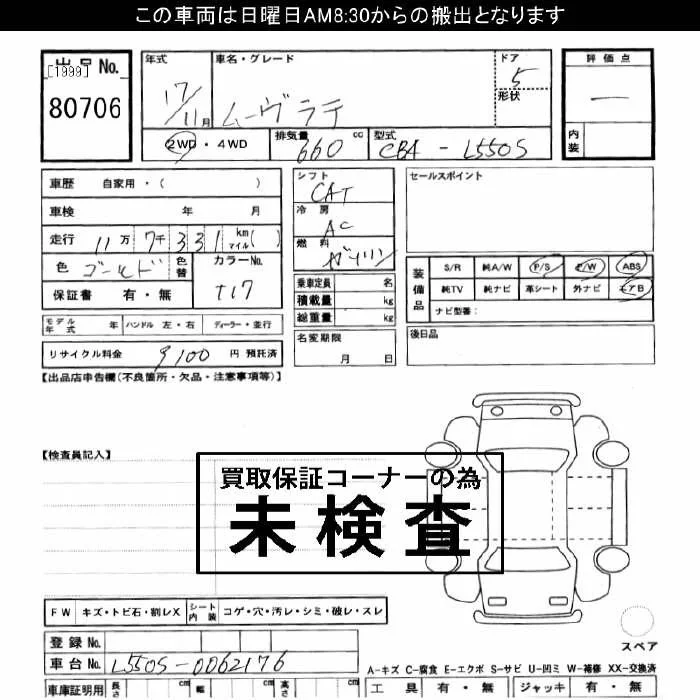 この車両は日曜日AM8:30からの搬出となります
出品No.
[1999]
80706
年式
17/11月
車名・グレード
ムーヴラテ
ドア
5
形状
2WD・4WD
排気量
660 cc
型式
CBA - L550S
評価点
―
内装
車歴 自家用・( )
車検 年 月
走行 11万7千331 km マイル( )
色 ゴールド 色替
カラーNo.
T17
保証書 有・無
モデル年式 年 ハンドル 左・右 ディーラー・並行
リサイクル料金 9100 円 預託済
シフト
CAT
冷房
AC
燃料
ガソリン
乗車定員 名
積載量 kg
総重量 kg
名変期限
月 日
セールスポイント
装備品
S/R 純A/W P/S P/W ABS
純TV 純ナビ 革シート 外ナビ エアB
ナビ型番:
後日品
【出品店申告欄(不良箇所・欠品・注意事項等)】
【検査員記入】
買取保証コーナーの為
未検査
FW キズ・トビ石・割レX シート内装 コゲ・穴・汚レ・シミ・破レ・スレ
登録No.
車台No. L550S-0062176
車庫証明用 長さ cm 幅 cm 高さ cm
スペア
A-キズ C-腐食 E-エクボ S-サビ U-凹ミ W-補修 XX-交換済
工具 有・無 ジャッキ 有・無